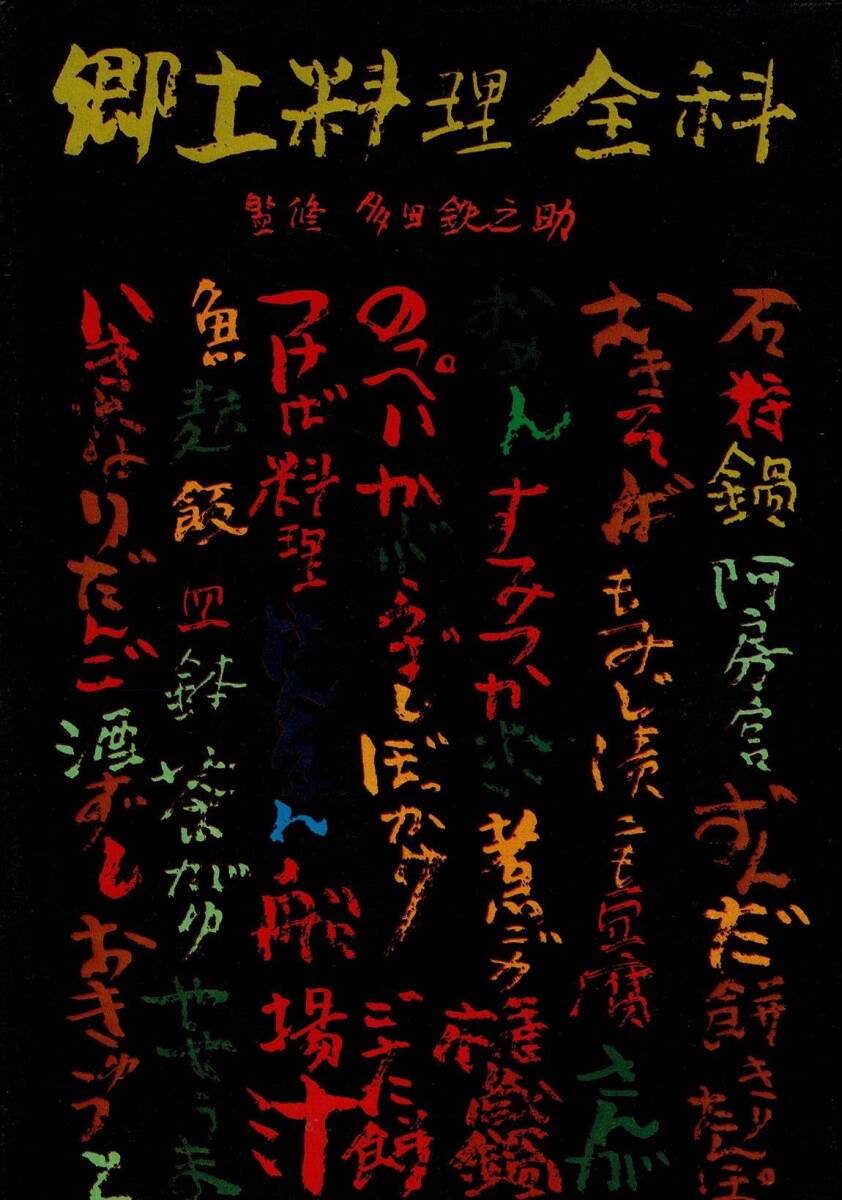 郷土料理全科
監修 多田鉄之助
石狩鍋 阿房宮 ずんだ餅 きりたんぽ
むきそば もみじ漬 こも豆腐 さんが
おめん すみつかれ 煮ごみ 権蔵鍋
のっぺい かぶらずし ぼっかけ ごへだ餅
つけば料理 けんちん 船場汁
魚麩飯 皿鉢 茶がゆ やせうま
いきなりだんご 酒ずし おきゅうと